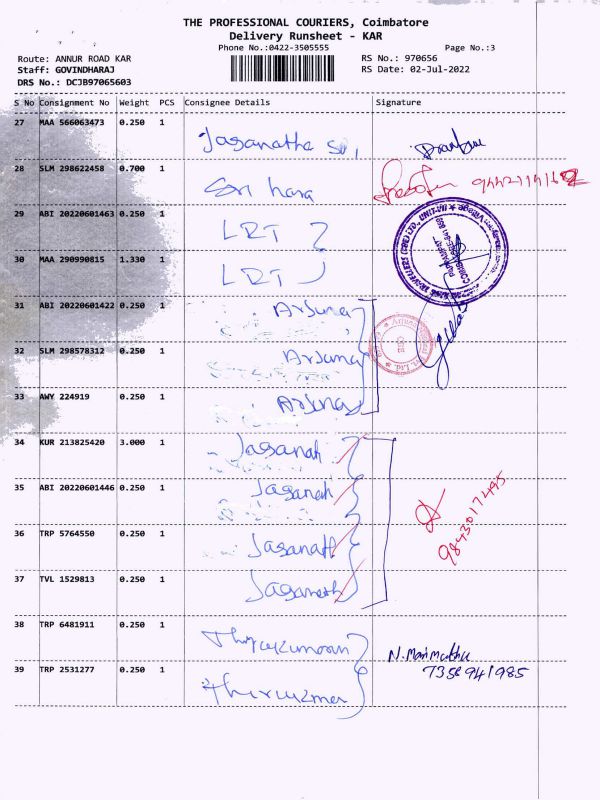 THE PROFESSIONAL COURIERS, Coimbatore
Delivery Runsheet - KAR
Phone No.:0422-3505555
Page No.:3
Route: ANNUR ROAD KAR
RS No.: 970656
Staff: GOVINDHARAJ
RS Date: 02-Jul-2022
DRS No.: DCJB97065603
S No Consignment No Weight PCS Consignee Details Signature
27 MAA 566063473 0.250 1 Jaganatha
28 SLM 298622458 0.700 1 Sri hara
29 ABI 20220601463 0.250 1 LRT
30 MAA 290990815 1.330 1 LRT
31 ABI 20220601422 0.250 1 Arjuna
32 SLM 298578312 0.250 1 Arjuna
33 AWY 224919 0.250 1 Arjuna
34 KUR 213825420 3.000 1 Jaganath
35 ABI 20220601446 0.250 1 Jaganath
36 TRP 5764550 0.250 1 Jaganath
9843017495
37 TVL 1529813 0.250 1 Jaganath
38 TRP 6481911 0.250 1 Thirukumaran N. Marimuthu
7358941985
39 TRP 2531277 0.250 1 Thirukumar